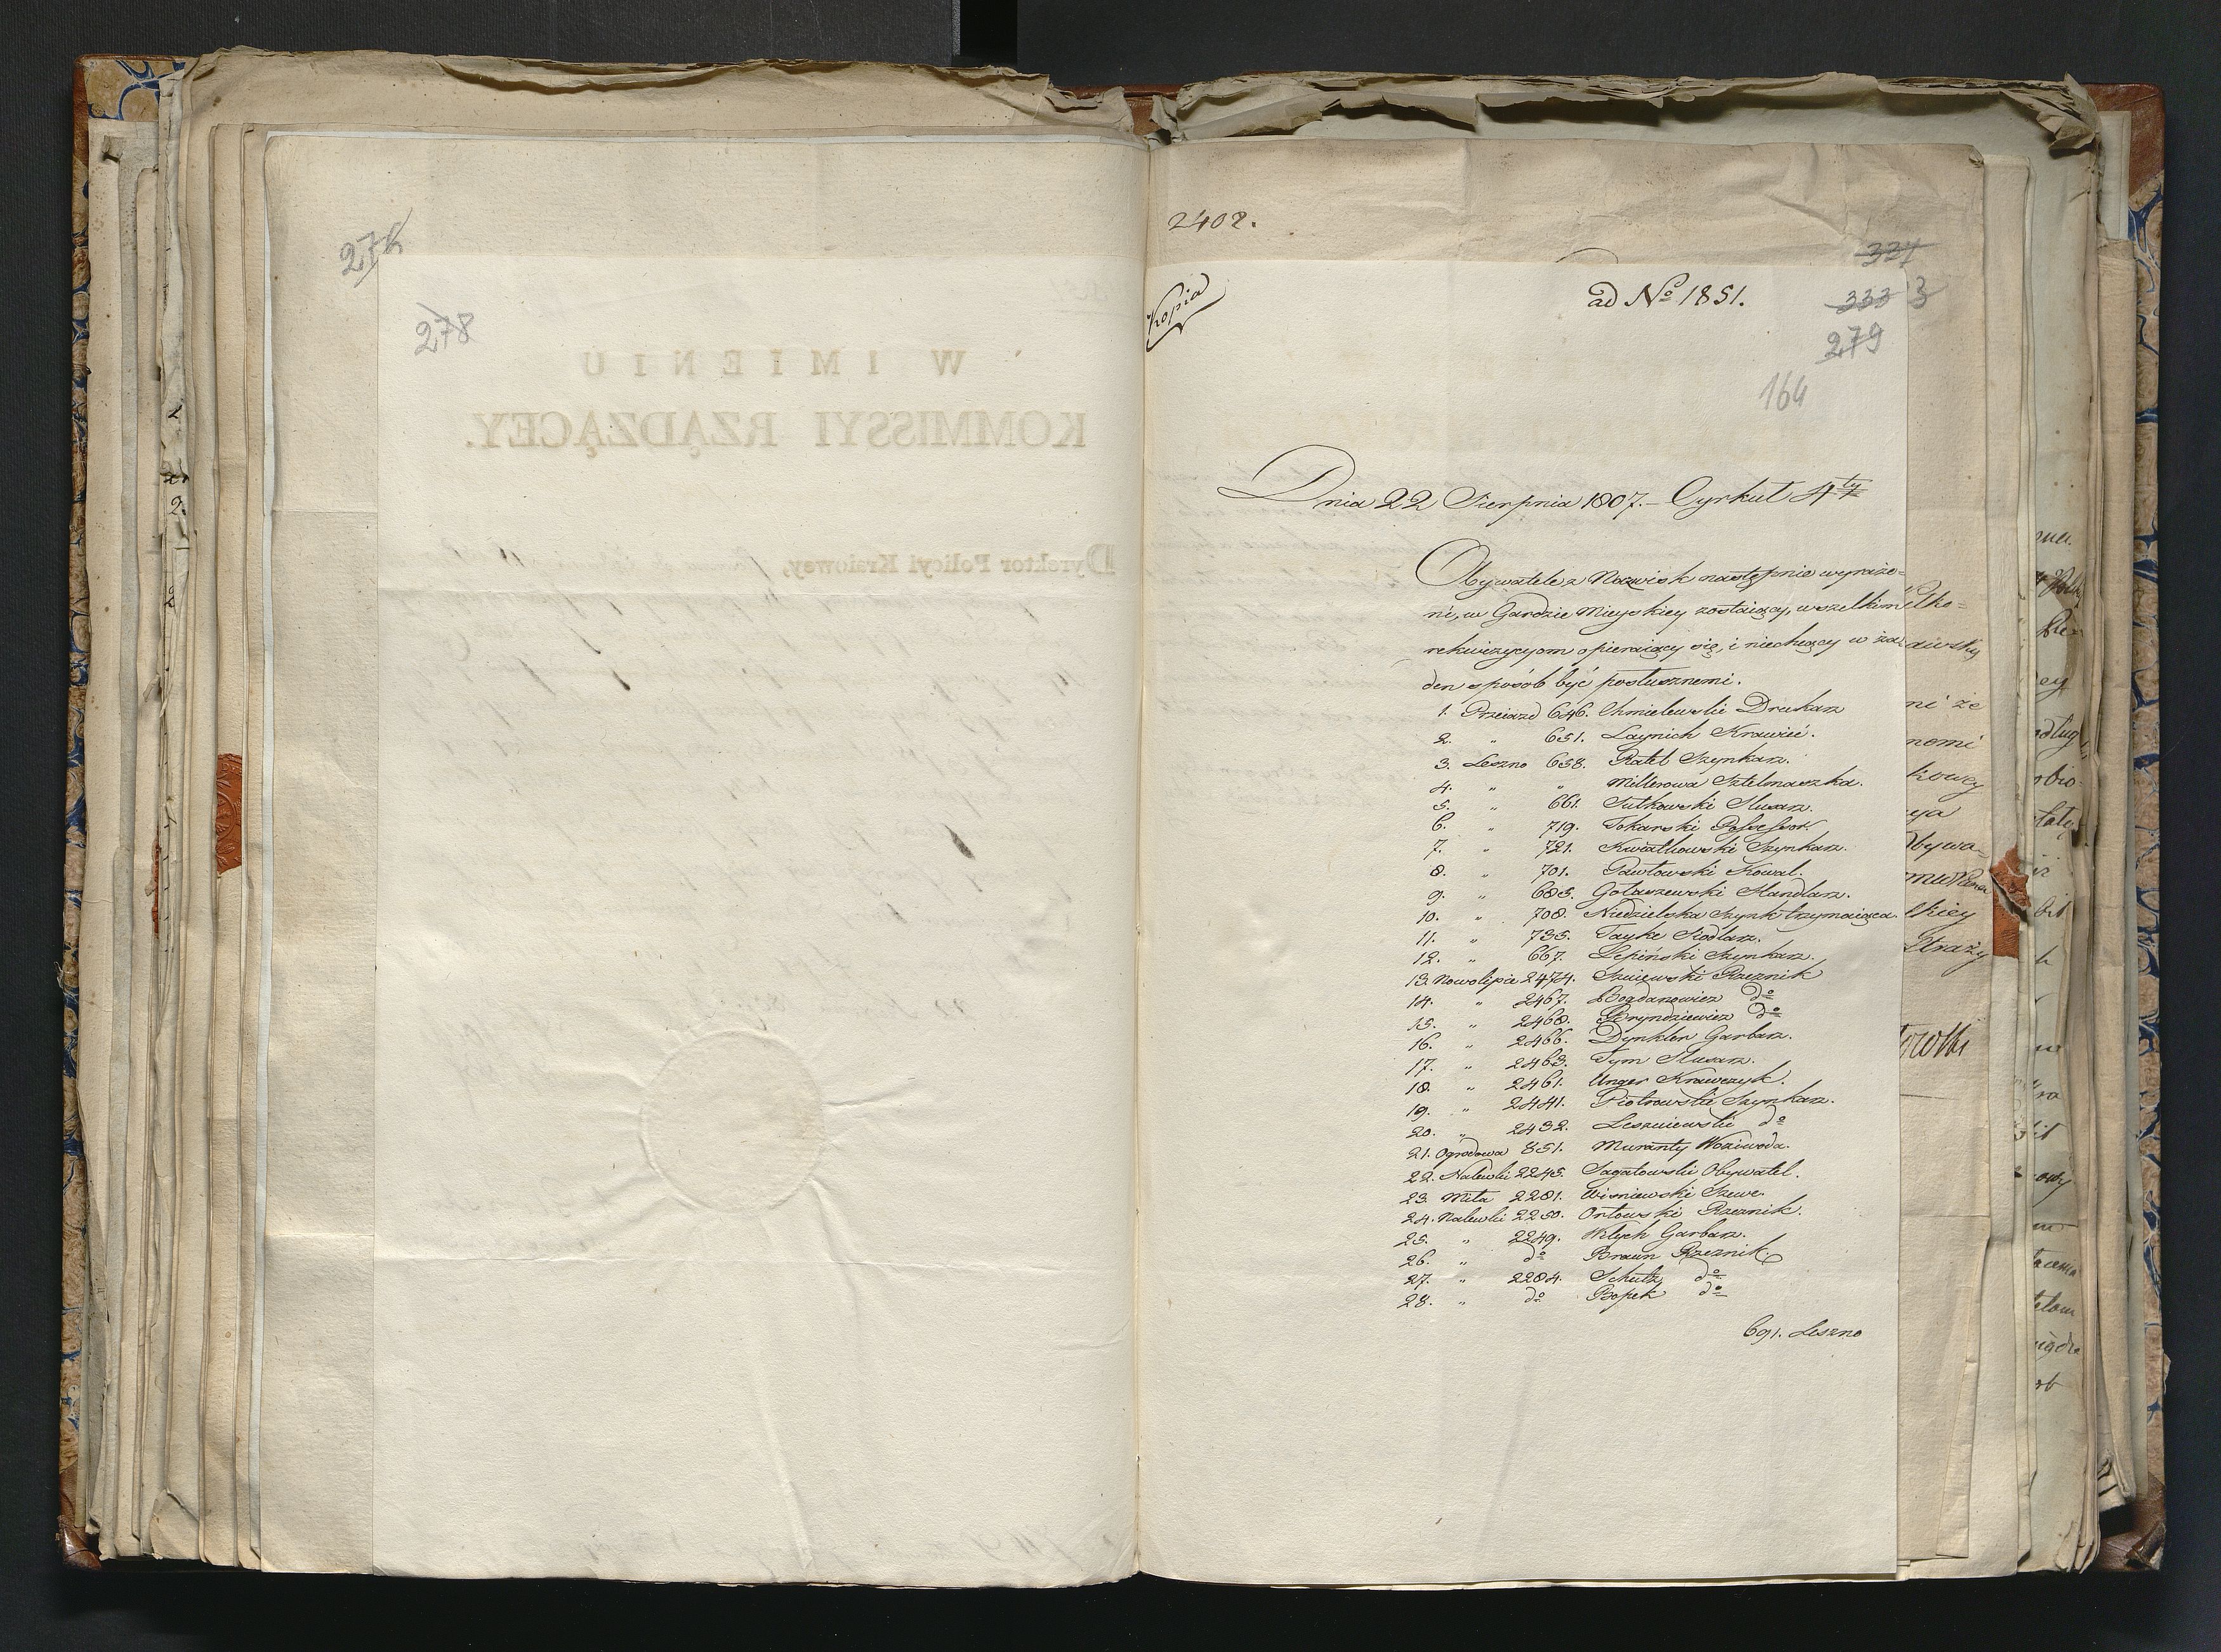 276
278
2402.
Kopia
ad Nº 1851.
321
333 3
279
164
Dnia 22 Sierpnia 1807. – Cyrkuł 4ty
Obywatele z Nazwisk następnie wyraże=
ni, w Gardzie Mieyskiey zostaiący, wszelkim
rekwizycyom opieraiący się, i niechcący w ża=
den sposób być posłusznemi.
1. Przeiazd 646. Chmielewski Drukarz
2. " 651. Laynich Krawiec.
3. Leszno 658. Ratel Szynkarz.
4. " " Millerowa Sztelmaszka.
5. " 661. Sutkowski Slusarz.
6. " 719. Tokarski Possessor.
7. " 721. Kwiatkowski Szynkarz.
8. " 701. Pawłowski Kowal.
9. " 683. Gołaszewski Handlarz.
10. " 708. Niedzielska Szynk trzymaiąca.
11. " 735. Tayke Siodlarz.
12. " 667. Lepiński Szynkarz.
13. Nowolipie 2474. Rzeznik
14. " 2467. Bogdanowicz dº
15. " 2468. Bryndziewicz dº
16. " 2466. Dynkler Garbarz.
17. " 2463. Tym Slusarz.
18. " 2461. Unger Krawczyk.
19. " 2441. Piotrowski Szynkarz.
20. " 2432. Leszniewski dº
21. Ogrodowa 851. Muranty Woziwoda.
22. Nalewki 2245. Sagatowski Obywatel.
23. Miła 2281. Wisniewski Szewc.
24. Nalewki 2250. Orłowski Rzeznik.
25. " 2249. Garbarz.
26. " dº Braun Rzeznik.
27. " 2284. Schultz dº
28. " dº Bopek dº
691. Leszno